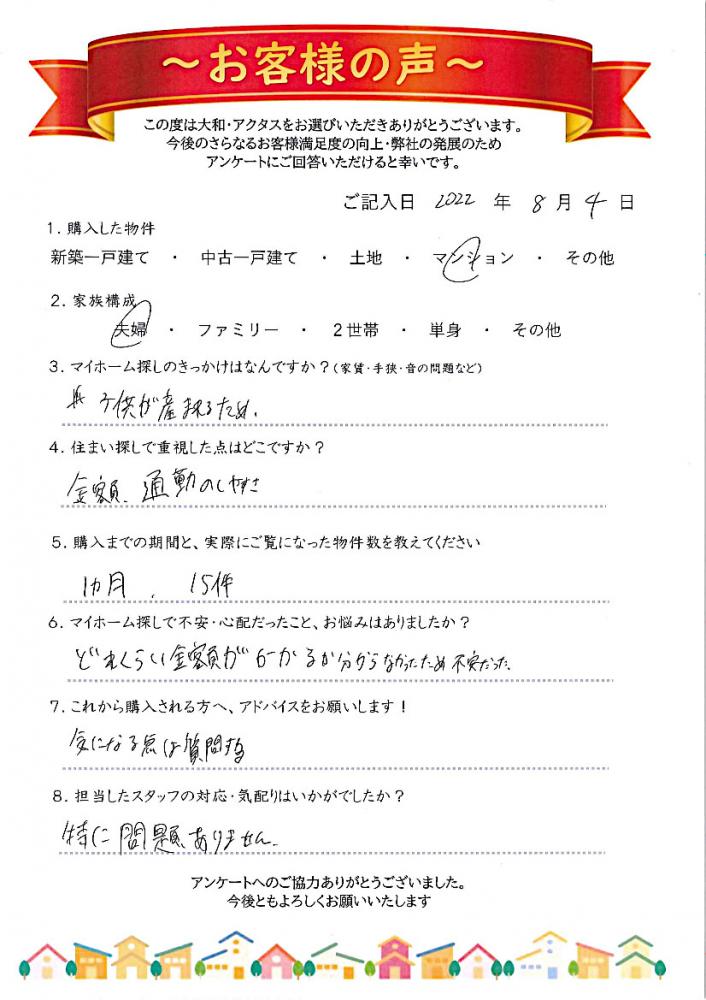 ～お客様の声～
この度は大和・アクタスをお選びいただきありがとうございます。
今後のさらなるお客様満足度の向上・弊社の発展のため
アンケートにご回答いただけると幸いです。
ご記入日 2022 年 8 月 4 日
1．購入した物件
新築一戸建て ・ 中古一戸建て ・ 土地 ・ マンション ・ その他
2．家族構成
夫婦 ・ ファミリー ・ 2世帯 ・ 単身 ・ その他
3．マイホーム探しのきっかけはなんですか？(家賃・手狭・音の問題など)
子供が産まれるため、
4．住まい探しで重視した点はどこですか？
金額、通勤のしやすさ
5．購入までの期間と、実際にご覧になった物件数を教えてください
1カ月、15件
6．マイホーム探しで不安・心配だったこと、お悩みはありましたか？
どれくらい金額がかかるか分からなかったため不安だった。
7．これから購入される方へ、アドバイスをお願いします！
気になる点は質問する
8．担当したスタッフの対応・気配りはいかがでしたか？
特に問題ありません。
アンケートへのご協力ありがとうございました。
今後ともよろしくお願いいたします